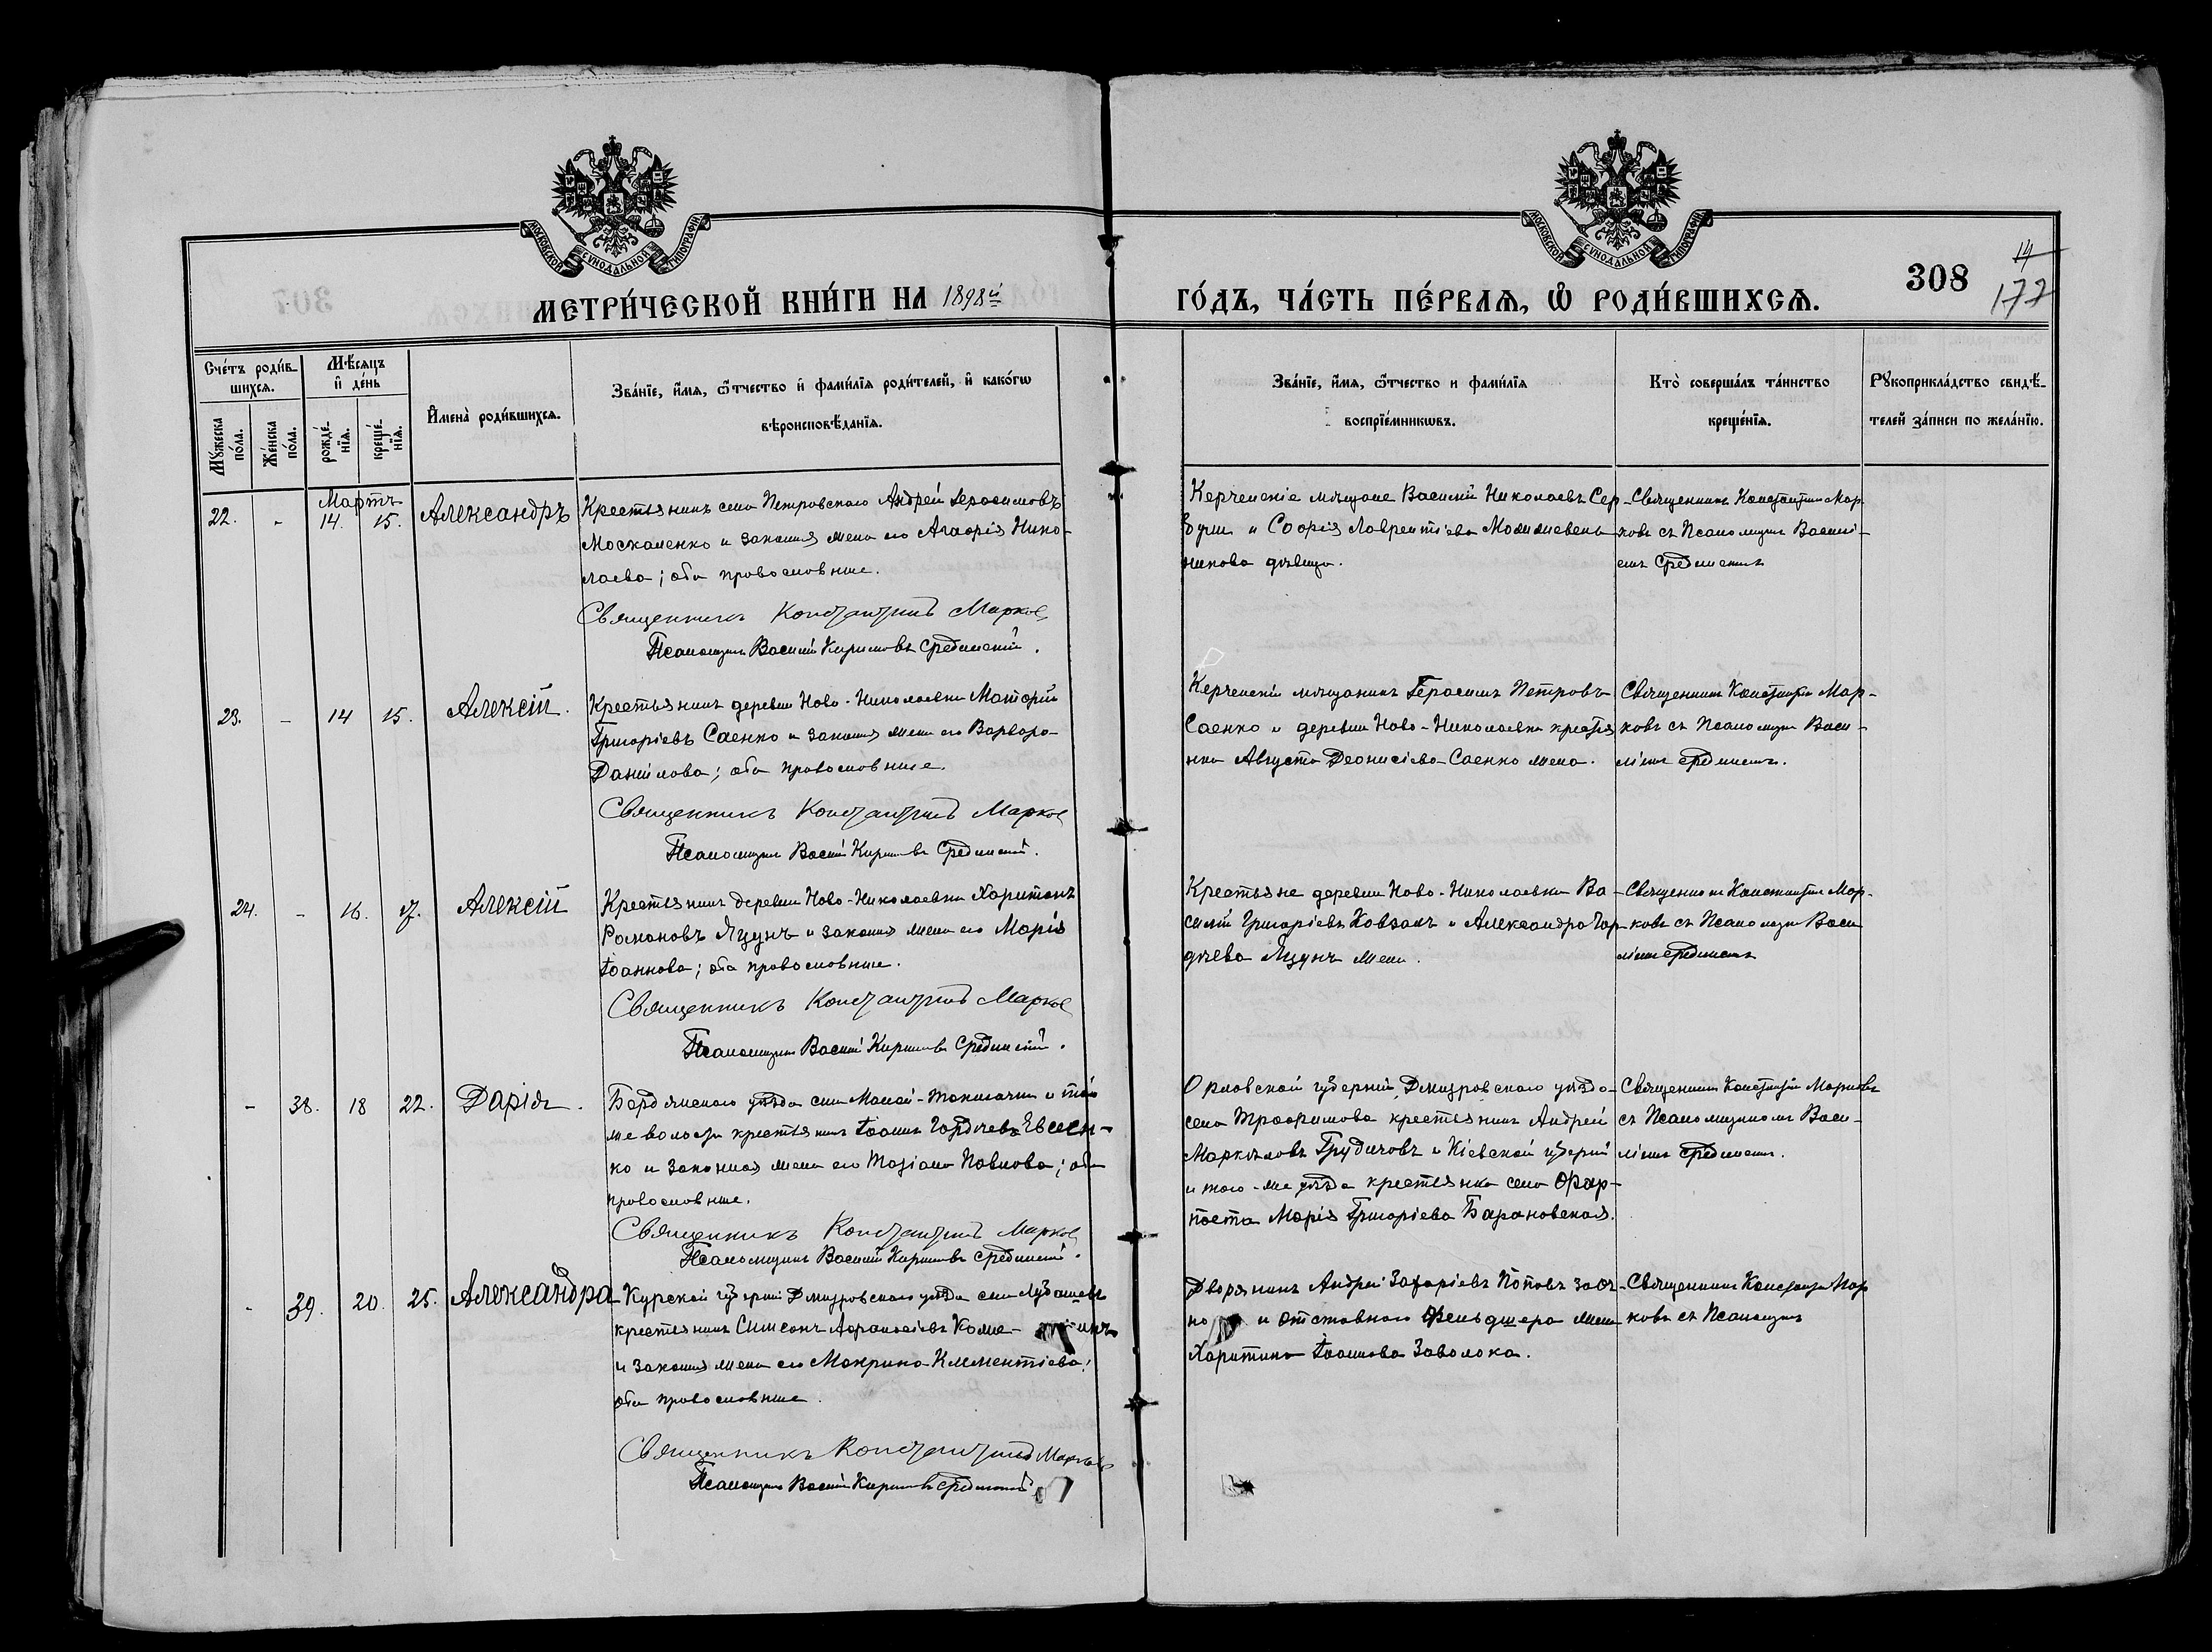 МОСКОВСКОЙ СѴНОДАЛЬНОЙ ТИПОГРАФІИ
МОСКОВСКОЙ СѴНОДАЛЬНОЙ ТИПОГРАФІИ
308
14
177
МЕТРИ́ЧЕСКОЙ КНИ́ГИ НА 1898й
ГО́ДЪ, ЧА́СТЬ ПЕ́РВАѦ, Ѡ РОДИ́ВШИХСѦ.
Сче́тъ роди́в-
шихсѧ.
Мꙋжеска по́ла.
Же́нска по́ла.
Мѣ́сѧцъ
и́ де́нь
рожде́-
нїѧ.
креще́-
нїѧ.
И҆мена̀ роди́вшихсѧ.
Зва́нїе, и҆́мѧ, ѻ҆́тчество и҆ фами́лїѧ роди́телей, и҆ како́гѡ
вѣроисповѣ́данїѧ.
Зва́нїе, и҆́мѧ, ѻ҆́тчество и фами́лїѧ
воспрїе́мникѡвъ.
Кто̀ соверша́лъ та́инство
креще́нїѧ.
Рꙋкоприкла́дство свидѣ́-
телей за́писи по жела́нїю.
Мартъ
22. - 14. 15. Александръ
Крестьянинъ села Петровскаго Андрей Герасимовъ
Москаленко и законная жена его Агафія Нико-
лаева; оба православные.
Священникъ Константинъ Марковъ
Псаломщикъ Василій Кириловъ Срединскій.
Керченскіе мѣщане Василій Николаевъ Сер-
и Софія Лаврентіева
никова дѣвица.
Священникъ Константинъ Мар-
ковъ съ Псаломщикомъ Василі-
емъ Срединскимъ
23. - 14 15. Алексій.
Крестьянинъ деревни Ново-Николаевки Матфій
Григоріевъ Саенко и законная жена его Варвара
Даніилова; оба православные.
Священникъ Константинъ Марковъ
Псаломщикъ Василій Кириловъ Срединскій.
Керченскій мѣщанинъ Герасимъ Петровъ
Саенко и деревни Ново-Николаевки крестья
нка Августа Деонисіева Саенко жена.
Священникъ Константинъ Мар-
ковъ съ Псаломщикомъ Васи-
ліемъ Срединскимъ.
24. - 16. 17. Алексій
Крестьянинъ деревни Ново-Николаевки Харитонъ
Романовъ Яцунъ и законная жена его Марія
Іоаннова; оба православные.
Священникъ Константинъ Марковъ
Псаломщикъ Василій Кириловъ Срединскій.
Крестьяне деревни Ново-Николаевки Ва-
силій Григоріевъ Ковзанъ и Александра Гор
дѣева Яцунъ жена.
Священникъ Константинъ Мар-
ковъ съ Псаломщикомъ Васи
ліемъ Срединскимъ
- 38. 18 22. Дарія.
Бердянскаго уѣзда села Малой-Токмачки и той
же волости крестьянинъ Іоаннъ Гордѣевъ Евсеен-
ко и законная жена его Татіана Павлова; оба
православные.
Священникъ Константинъ Марковъ
Псаломщикъ Василій Кириловъ Срединскій.
Орловской губерніи, Дмитровскаго уѣзда
села Трофимова крестьянинъ Андрей
Маркѣловъ Грудичовъ и Кіевской губерніи
и того-же уѣзда крестьянка села Фар-
поста Марія Григоріева Барановская.
Священникъ Константинъ Марковъ
съ Псаломщикомъ Васи-
ліемъ Срединскимъ.
- 39. 20. 25. Александра
Курской губерніи Дмитровскаго уѣзда села
крестьянинъ Симеонъ Афанасіевъ
и законная жена его Макрина Клементіева;
оба православные.
Священникъ Константинъ Марковъ
Псаломщикъ Василій Кириловъ Срединскій
Дворянинъ Андрей Захаріевъ Поповъ
и отставнаго Фельдшера жена
Харитина Іоаннова Заволока.
Священникъ Константинъ Мар
ковъ съ Псаломщик